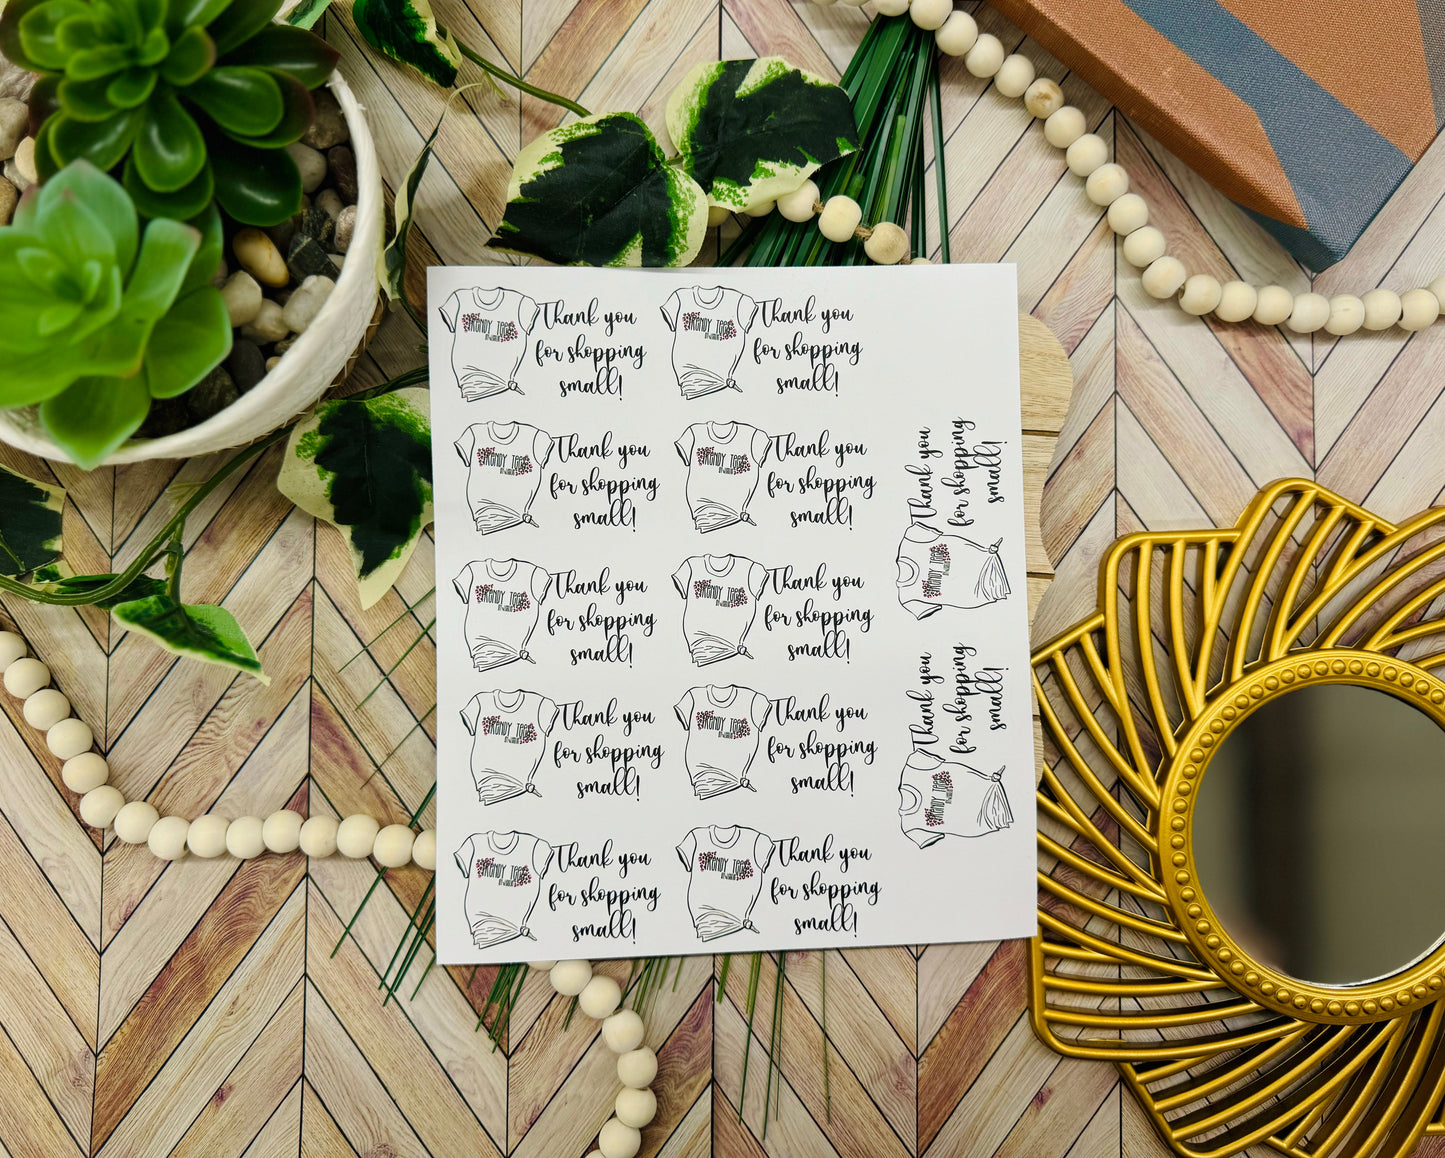 Thank you
for shopping
small!
TRENDY TEES
Thank you
for shopping
small!
TRENDY TEES
Thank you
for shopping
small!
TRENDY TEES
Thank you
for shopping
small!
TRENDY TEES
Thank you
for shopping
small!
TRENDY TEES
Thank you
for shopping
small!
TRENDY TEES
Thank you
for shopping
small!
TRENDY TEES
Thank you
for shopping
small!
TRENDY TEES
Thank you
for shopping
small!
TRENDY TEES
Thank you
for shopping
small!
TRENDY TEES
Thank you
for shopping
small!
TRENDY TEES
Thank you
for shopping
small!
TRENDY TEES